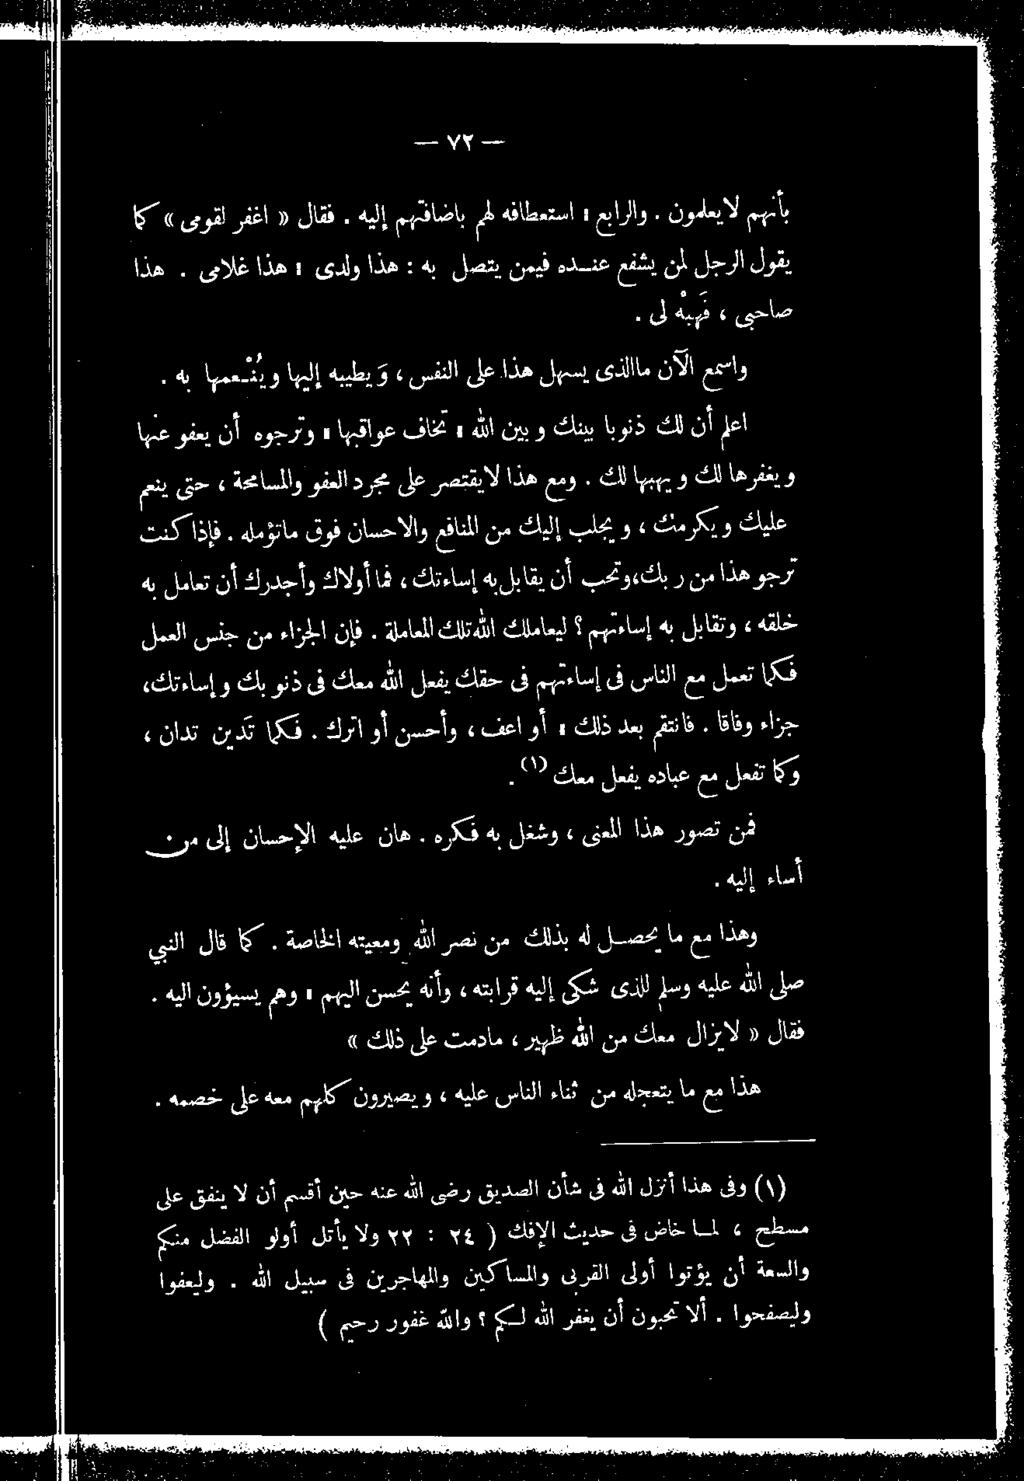 — ٧٢ —
بأنهم لايعلمون . والرابع : استعطافه لهم باضافتهم إليه . فقال « اغفر لقومى » كما
يقول الرجل لمن يشفع عنـده فيمن يتصل به : هذا ولدى : هذا غلامى . هذا
صاحبى ، فَهَبْه لى .
واسمع الآن ماالذى يسهل هذا على النفس ، وَ يطيبه إليها ويُنْـعمها به .
اعلم أن لك ذنوبا بينك و بين الله : تخاف عواقبها : وترجوه أن يعفو عنها
و يغفرها لك و يهبها لك . ومع هذا لايقتصر على مجرد العفو والمسامحة ، حتى ينعم
عليك ويكرمك ، و يجلب إليك من المنافع والاحسان فوق ماتؤمله . فإذا كنت
ترجو هذا من ر بك ، وتحب أن يقابل به إساءتك ، فما أولاك وأجدرك أن تعامل به
خلقه ، وتقابل به إساءتهم ؟ ليعاملك الله تلك المعاملة . فإن الجزاء من جنس العمل
فـكما تعمل مع الناس فى إساءتهم فى حقك يفعل الله معك فى ذنو بك و إساءتك ،
جزاء وفاقا . فانتقم بعد ذلك : أو اعف ، وأحسن أو اترك . فـكما تَدين تدان ،
وكما تفعل مع عباده يفعل معك (١) .
فمن تصور هذا المعنى ، وشغل به فـكره . هان عليه الإحسان إلى من
أساء إليه .
وهذا مع ما يحصـل له بذلك من نصر الله ومعيته الخاصة . كما قال النبي
صلى الله عليه وسلم للذى شكى إليه قرابته ، وأنه يحسن اليهم : وهم يسيؤون اليه .
فقال « لايزال معك من الله ظهير ، مادمت على ذلك »
هذا مع ما يتعجله من ثناء الناس عليه ، و يصيرون كلهم معه على خصمه .
(١) وفى هذا أنزل الله فى شأن الصديق رضى الله عنه حين أقسم أن لا ينفق على
مسطح ، لـما خاض فى حديث الإفك ( ٢٤ : ٢٢ ولا يأتل أولو الفضل منكم
والسعة أن يؤتوا أولى القربى والمساكين والمهاجرين فى سبيل الله . وليعفوا
وليصفحوا . ألا تحبون أن يغفر الله لـكم ؟ والله غفور رحيم )